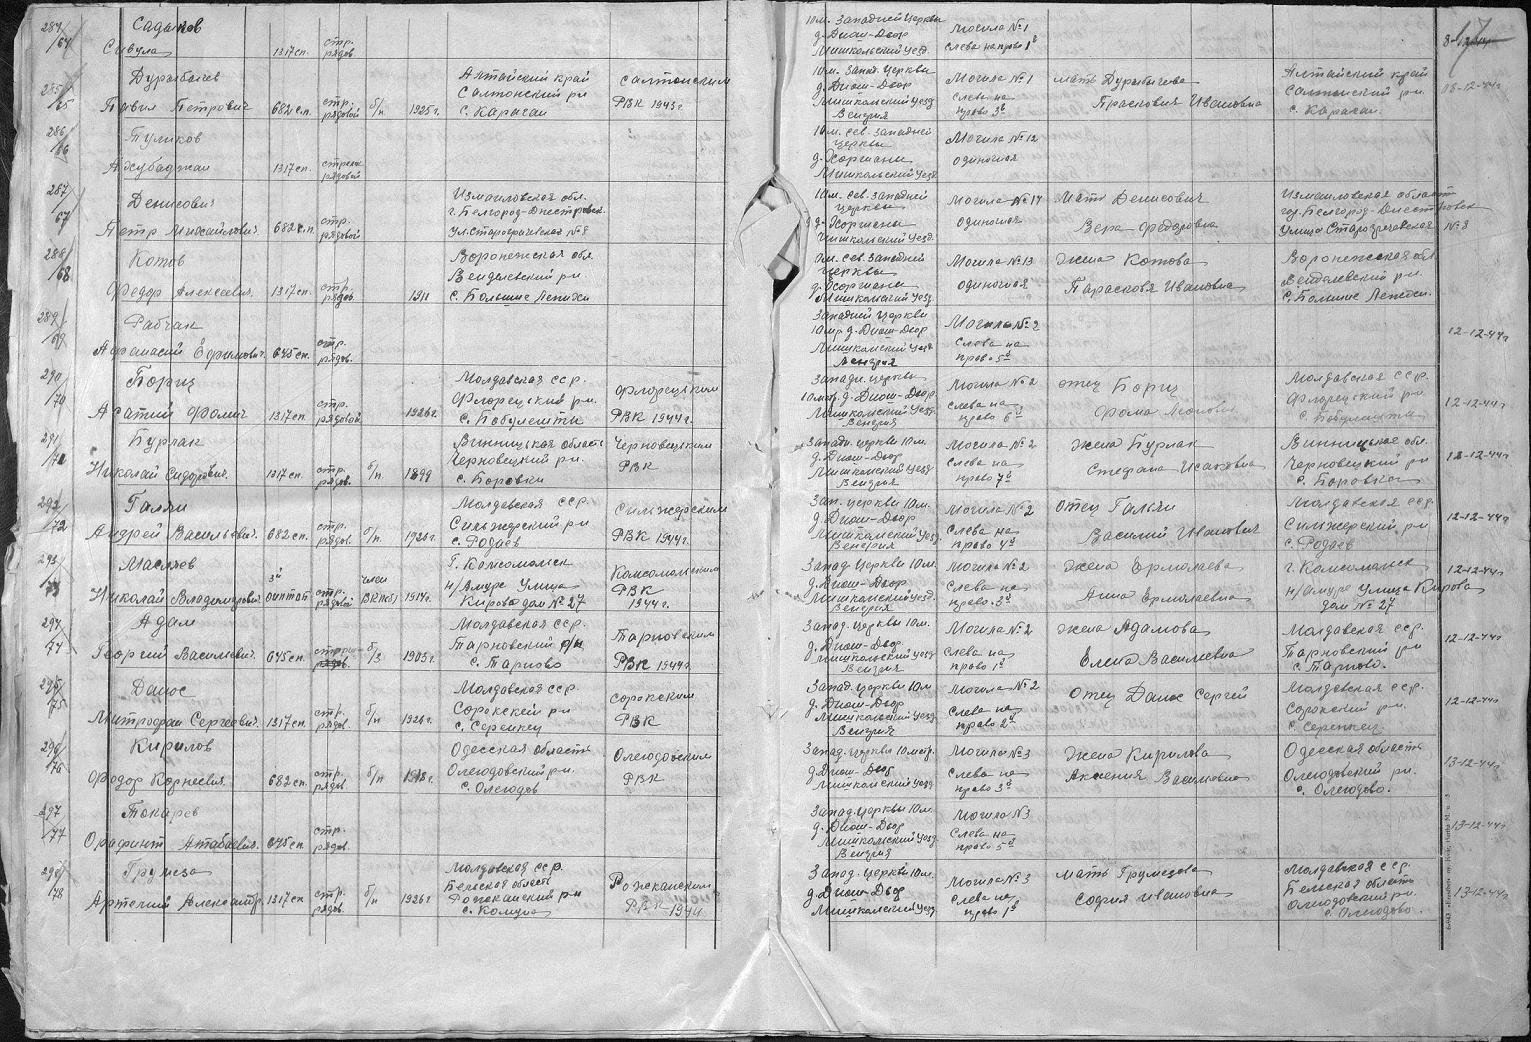 284/64 Садыков
Сивула 1317 сп. стр. рядов.
10 м. Западней Церкви
д. Диош-Дьор
Мишкольский уезд.
Могила № 1
слева направо 1й
8-12-44
17
285/65 Дурыбачев
Павил Петрович 682 сп. стр. рядовой б/п 1925 г.
Алтайский край
Салтонский р-н
с. Карасаи
Салтонским
РВК 1943 г.
10 м. Запад. Церкви
д. Диош-Дьор
Мишкольский Уезд
Венгрия
Могила № 1
слева на
право 3й
мать Дурыбачева
Прасковия Ивановна
Алтайский край
Салтонский р-н.
с. Карасаи.
08-12-44 г
286/66 Туликов
Ахубаджан 1317 сп. стрелк рядовой
10 м. сев. Западней
Церквы
д. Хорщани
Мишкольский Уезд.
Могила № 12
одиночная
287/67 Денисович
Петр Михайлович. 682 с.п. стр. рядовой
Измаиловская обл.
г. Белгород-Днестровск.
ул. Староорическая № 8
10 м. сев. Западней
Церквы
д. Хорщани
Мишкольский Уезд.
Могила № 14
одиночная
Мать Денисович
Вера Федоровна
Измаиловская область
гор. Белгород-Днестровск
улица Староорическая № 8
288/68 Котов
Федор Алексеевич. 1317 сп. стр. рядов. 1911
Воронежская обл
Вейделевский р-н
с. Большие Лепяги
10 м. сев. Западней
Церквы
д. Хорщани
Мишкольский Уезд
Могила № 13
одиночная
Жена Котова
Парасковя Ивановна
Воронежская обл
Вейделевский р-н.
с. Большие Лепяги.
289/69 Рабчак
Афанасий Ефимович. 645 сп. стр. рядов.
Западней Церкви
10 мр д. Диош-Дьор
Мишкольский Уезд
Венгрия
Могила № 2
слева на
право 5й
12-12-44 г
290/70 Бориц
Асатий Фомич 1317 сп стр. рядовой. 1926 г.
Молдавская сср.
Флорецский р-н.
с. Бобулешты
Флорецским
РВК 1944 г.
Западн. церкви
10 мтр. д. Диош-Дьор.
Мишкольский Уезд
Венгрия
Могила № 2
слева на
право 6й
отец Бориц
Фома Леонови
Молдавская сср.
Флорецский р-н
с. Бобулешты
12-12-44 г
291/71 Бурлак
Николай Сидорович. 1317 сп стр. рядов. б/п 1899
Винницская область
Черновецкий р-н.
с. Боровки
Черновецким
РВК
Западн. церкви 10 м.
д. Диош-Дьор
Мишкольский Уезд
Венгрия
Могила № 2
слева на
право 7й
Жена Бурлак
Стефана Исаковна
Винницькая обл.
Черновецкий р-н
с. Боровка
12-12-44 г
292/72 Галли
Андрей Васильевич. 682 сп. стр. рядов. б/п 1926 г.
Молдавская сср.
Сильжерский р-н
с. Родаев
Сильжерским
РВК 1944 г.
Зап. церкви 10 м.
д. Диош-Дьор
Мишкольский Уезд.
Венгрия
Могила № 2
слева на
право 4й
Отец Гальли
Василий Иванович
Молдавская сср
Сильжерский р-н
с. Родаев
12-12-44 г
293/73 Масляев
Николай Владимирович 3й оиптоб стр. рядовой член ВКП(б) 1914 г.
г. Комсомольск
н/Амуре Улица
Кирова дом № 27
Комсомольским
РВК
1944 г.
Запад Церкви 10 м.
д. Диош-Дьор
Мишкольский Уезд.
Венгрия
Могила № 2
Слева на
право. 3й
Жена Ермолаева
Анна Ермолаевна
г. Комсомольск
н/Амуре Улица Кирова
дом № 27
12-12-44 г
294/74 Адам
Георгий Васильевич. 645 сп. б/з 1905 г.
Молдавская сср.
Тарновский р/н
с. Тарново
Тарновским
РВК 1944 г.
Запад. Церкви 10 м.
д. Диош-Дьор
Мишкольский Уезд
Венгрия
Могила № 2
слева на
право 1й
жена Адамова
Елена Васильевна
Молдавская сср.
Тарновский р-н
с. Тарново.
12-12-44 г
295/75 Данос
Митрофан Сергеевич. 1317 сп. стр. рядов. б/п 1926 г.
Молдавская сср
Сорокский р-н
с. Серенкец
Сорокским
РВК
Запад. Церкви 10 м
д. Диош-Дьор
Мишкольский Уезд.
Венгрия
Могила № 2
слева на
право 2й
Отец Данос Сергей
Молдавская сср.
Сорокский р-н.
с. Серенкец
12-12-44 г
296/76 Кирилов
Федор Корнеевич. 682 сп. стр. рядов. б/п 1918 г.
Одесская область
Олегодовский р-н.
с. Олегодов
Олегодовским
РВК
Запад. Церкви 10 мтр.
д. Диош-Дьор
Мишкольский Уезд
Могила № 3
слева на
право 3й
Жена Кирилова
Аксения Васильевна
Одесская область
Олегодовский р-н.
с. Олегодово.
13-12-44 г
297/77 Токарев
Орафинт Атабаевич. 645 сп стр. рядов.
Запад. Церквы 10 м.
д. Диош-Дьор
Мишкольский Уезд
Венгрия
Могила № 3
Слева на
право 5й
13-12-44 г
298/78 Грумеза
Артений Александр. 1317 сп стр. рядов. б/п 1926 г
Молдавская сср.
Бельская область
Рожканский р-н
с. Комуна
Рожканским
РВК 1944
Запад. Церкви 10 м.
д. Диош-Дьор
Мишкольский Уезд
Могила № 3
Слева на
право 1й
мать Грумезова
София Ивановна
Молдавская сср.
Бельская область
Олегодовский р-н
с. Олегодово.
13-12-44 г